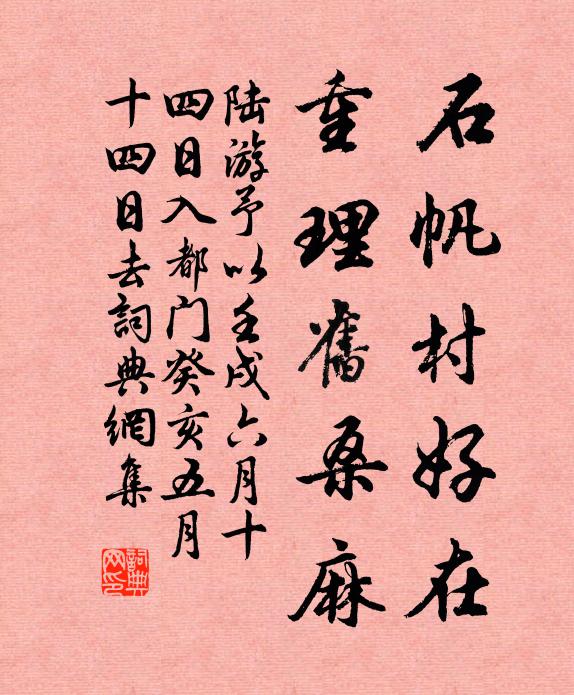 石帆村好在
重理舊桑麻
陆游予以壬戌六月十
四日入都门癸亥五月
十四日去詞典網集
詞典网印